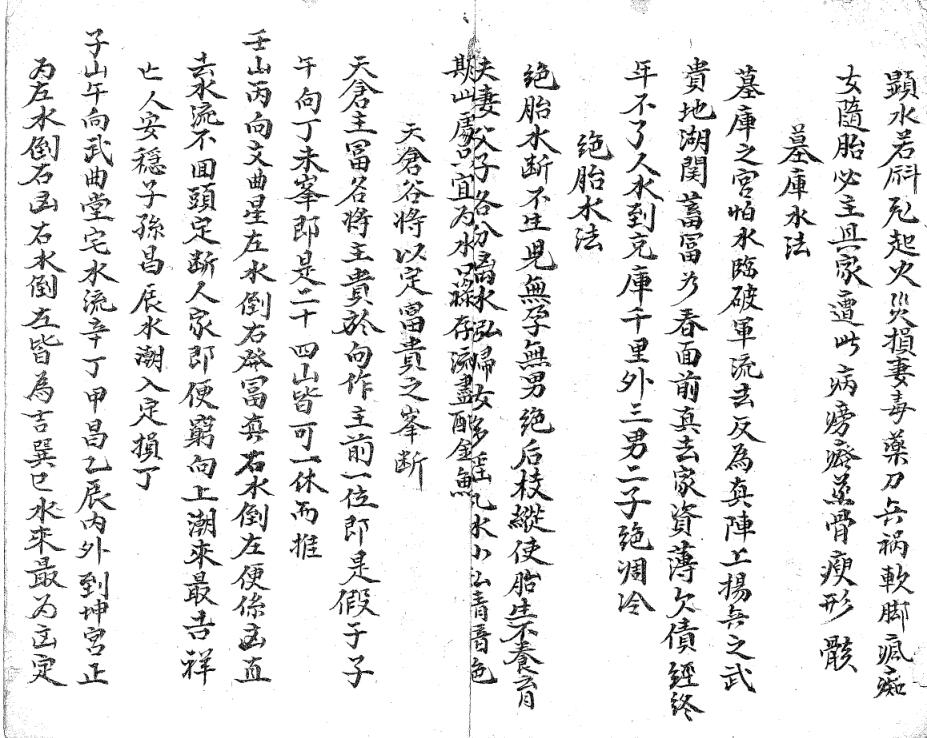 顕水若斜死起火災損妻毒藥刀兵禍軟脚瘋痴
女隨胎必主其家遭此病癆瘵蒸骨瘦形骸
墓庫水法
墓庫之宮怕水臨破軍流去反為真陣上揚兵之武
貴地湖闊蓄冨為春面前真去家資薄欠債經終
年不了人水到克庫千里外三男二子絶凋冷
絶胎水法
絶胎水断不生児無孕無男絶后枝縱使胎生不養育
夫妻父子各分离水泓婦女多淫乱水小公青音色
期山處只宜為水口祿存流盡酌金魚
天倉谷將以定富貴之峯断
天倉主冨谷將主貴於向作主前一位即是假子子
午向丁未峯即是二十四山皆可一休而推
壬山丙向文曲星左水倒右發冨真右水倒左便係凶直
去水流不囬頭定断人家即便窮向上潮來最吉祥
亡人安穩子孫昌辰水潮入定損丁
子山午向武曲堂宅水流辛丁甲昌乙辰内外到坤宮正
为左水倒右凶右水倒左皆為吉巽巳水來最为凶定